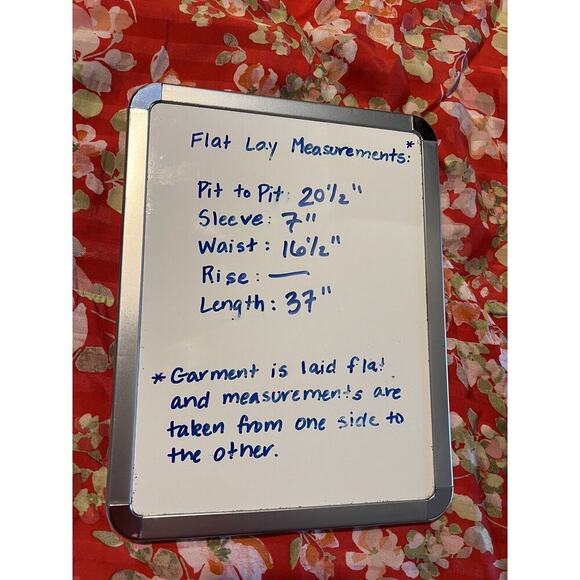 Flat Lay Measurements:*
Pit to Pit: 20 1/2"
Sleeve: 7"
Waist: 16 1/2"
Rise: —
Length: 37"
* Garment is laid flat
and measurements are
taken from one side to
the other.